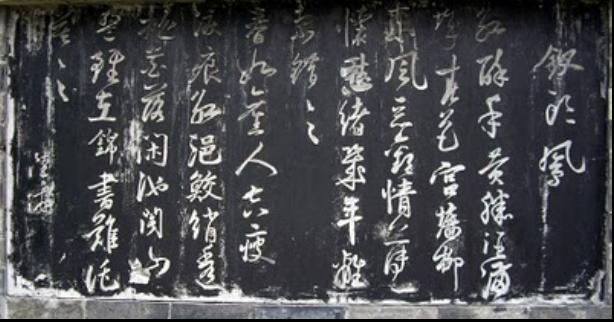 釵頭鳳
紅酥手黃縢酒滿
城春色宮墻柳
東風惡歡情薄一
懷愁緒幾年離
索錯々々
春如舊人空瘦
淚痕紅浥鮫綃透
桃花落閑池閣山
盟雖在錦書難托
莫々々